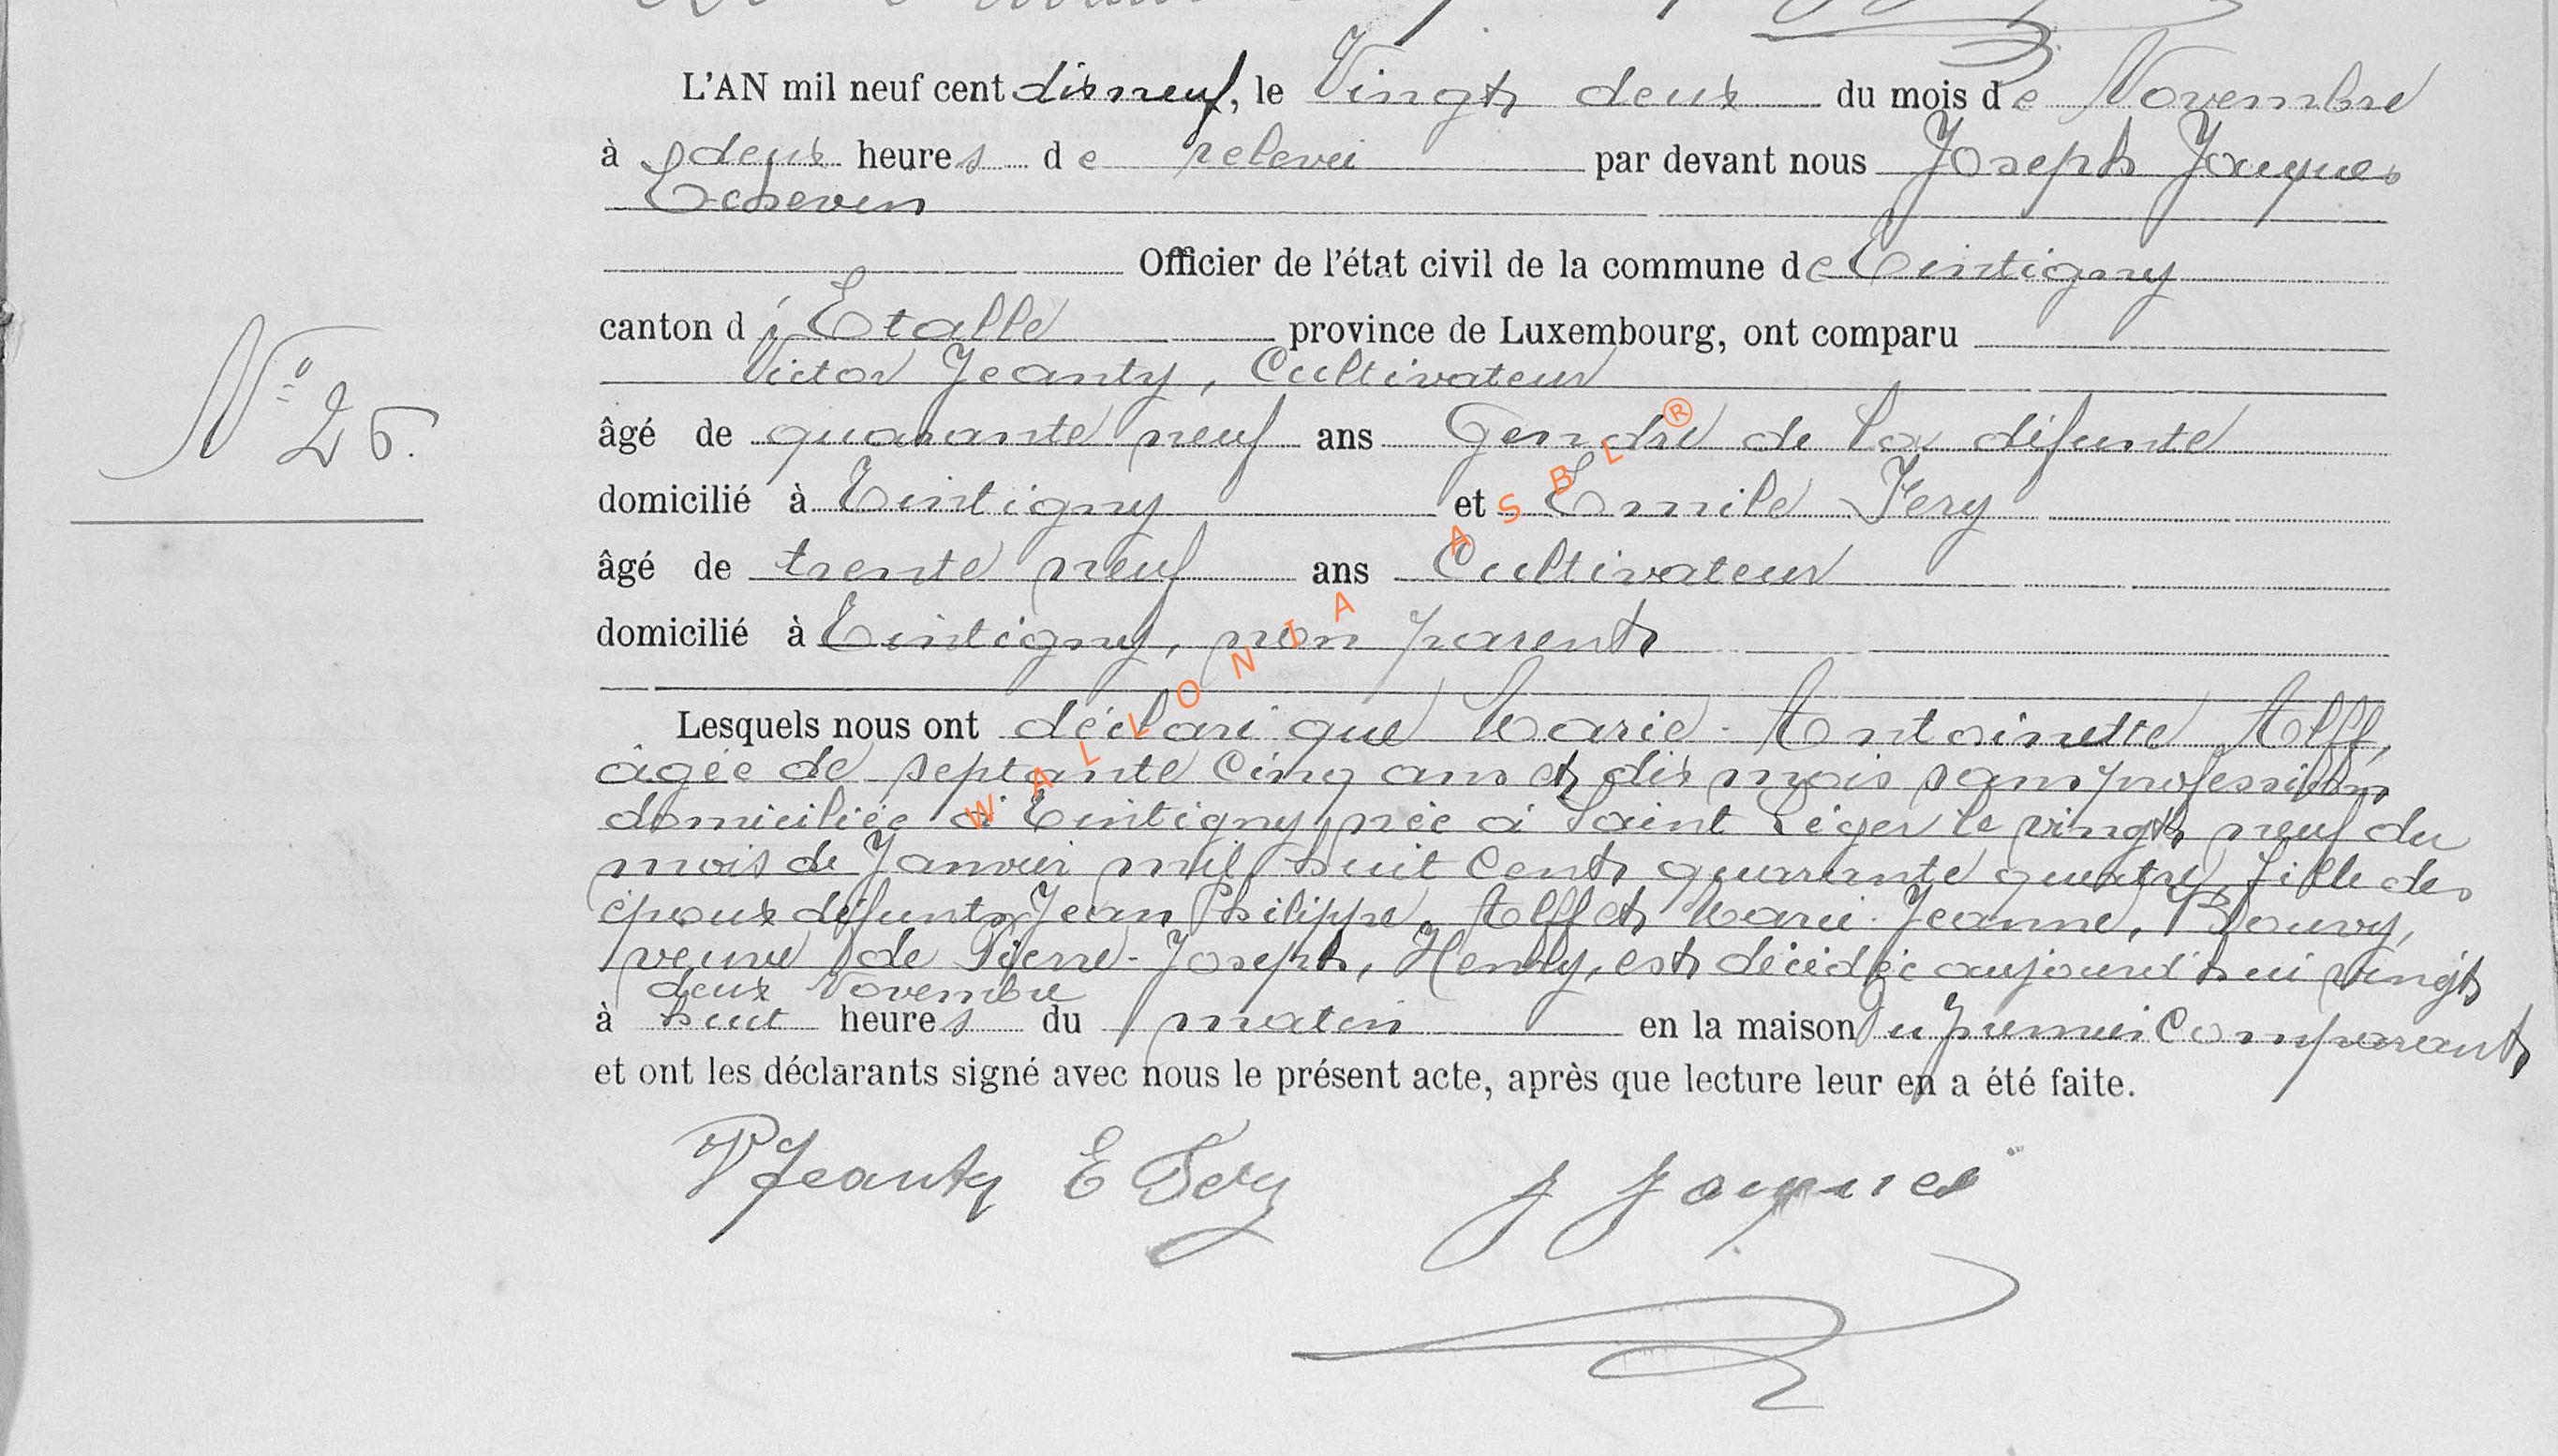 L'AN mil neuf cent dix neuf, le Vingt deux du mois de Novembre
à deux heures de relevée par devant nous Joseph Jacques
Echevin
Officier de l'état civil de la commune de Tintigny
canton d'Etalle province de Luxembourg, ont comparu
Victor Jeanty, Cultivateur
âgé de quarante neuf ans Gendre de la défunte
domicilié à Tintigny et Emile Fery
âgé de trente neuf ans Cultivateur
domicilié à Tintigny, non parent
Lesquels nous ont déclaré que Marie-Antoinette Alff,
âgée de septante cinq ans et dix mois sans profession
domiciliée à Tintigny, née à Saint Léger le vingt neuf du
mois de Janvier mil huit cent quarante quatre, fille des
époux défunts Jean Philippe, Alff et Marie-Jeanne, Bouvy,
veuve de Pierre-Joseph, Henry, est décédée aujourd'hui vingt
deux Novembre
à huit heures du matin en la maison du premier Comparant
et ont les déclarants signé avec nous le présent acte, après que lecture leur en a été faite.
V Jeanty E Fery J Jacques
N° 26.
WALLONIA ASBL ®